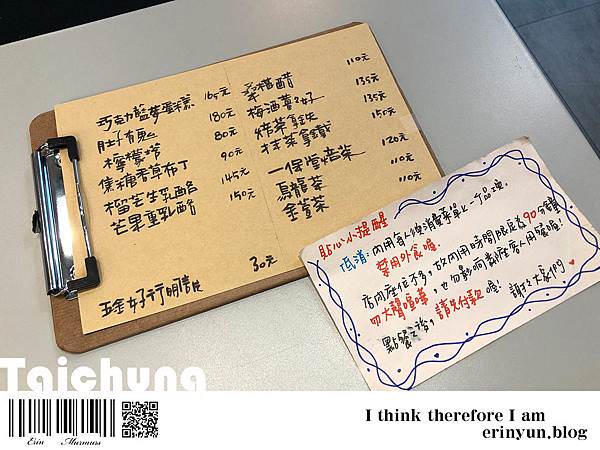 巧克力藍莓蛋糕 165元
肚子有鬼 180元
檸檬塔 80元
焦糖香草布丁 90元
榴芒生乳酪 145元
芒果重乳酪 150元
五金好行明信片 30元
桑椹醋 110元
梅酒薑好 135元
抹茶拿鐵 135元
150元
一保堂焙茶 120元
烏龍茶 110元
金萱茶 110元
貼心小提醒
低消:內用每人須消費菜單上一千品項。
禁用外食喔
店內座位不多,故內用時間限定為90分鐘
叩大聲喧嘩,也勿影響鄰座客人用餐喔!
點餐之後,請先付款喔! 謝謝大家們
Taichung
Erin Murmurs
I think therefore I am
erinyun.blog